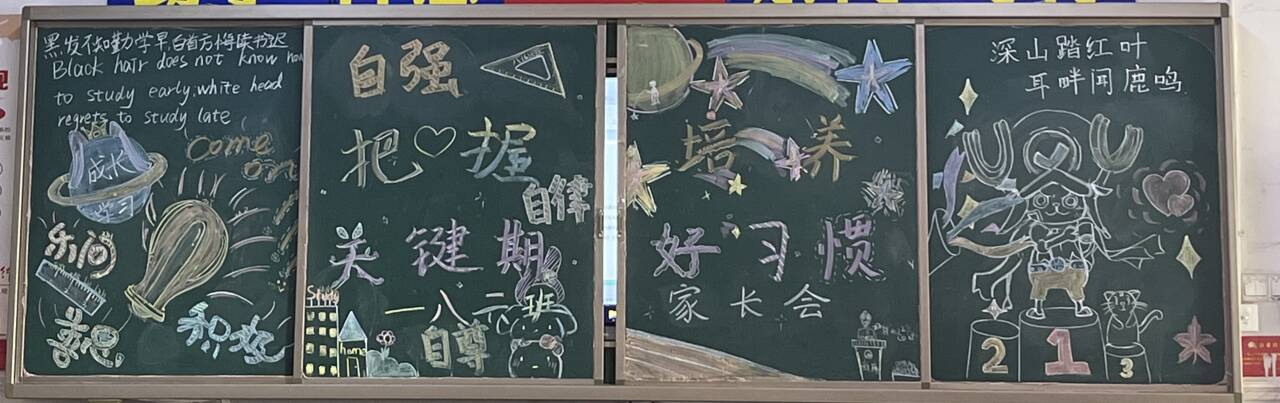 黑发不知勤学早,白首方悔读书迟
Black hair does not know how
to study early.white head
regrets to study late
Come
on
成长
学习
乐问
积极
自强
把握
自律
关键期
一八六班
自尊
Study
home
培养
好习惯
家长会
深山踏红叶
耳畔闻鹿鸣
2
1
3